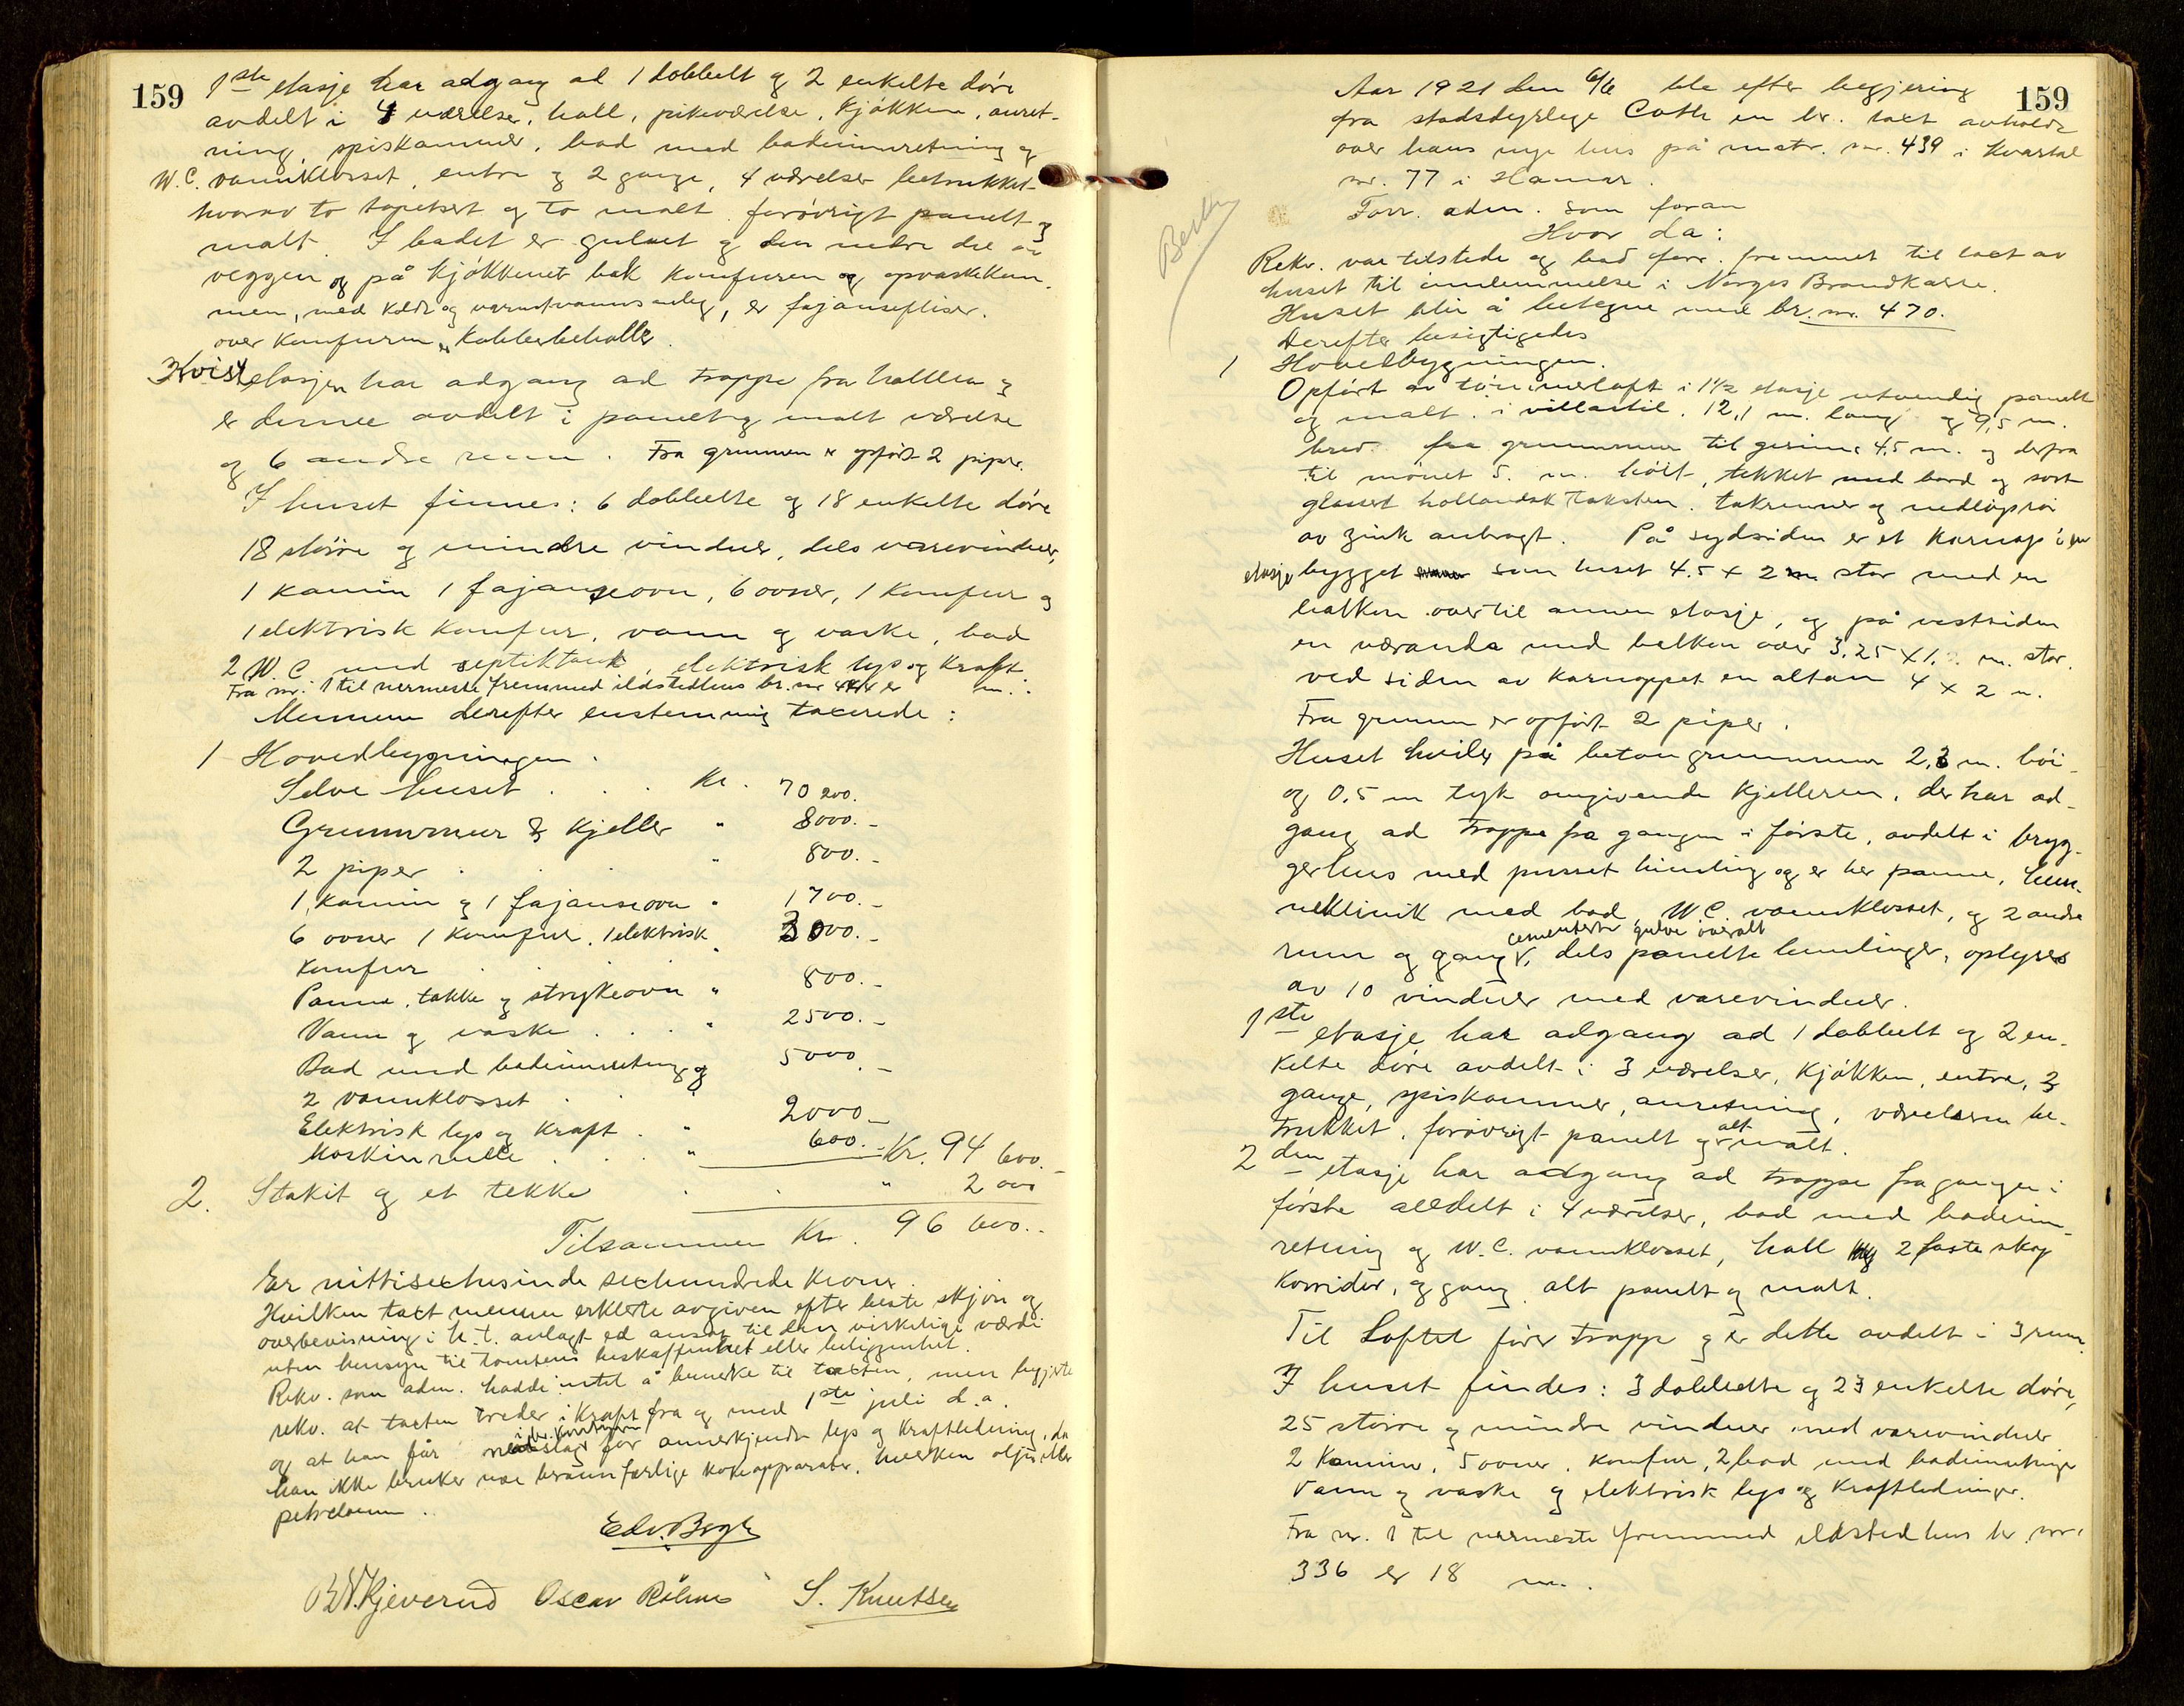 159
1ste etasje har adgang ad 1 dobbelt og 2 enkelte døre
avdelt i 4 værelser, hall, pikeværelse, kjøkken, anret-
ning, spiskammer, bad med badeinnretning og
W.C. vannklosset, entre og 2 gange, 4 værelser betrukket
hvorav to tapetsert og to malt forøvrigt panelt og
malt. I badet er gulvet og den nedre del av
veggen og på kjøkkenet bak komfuren og opvaskkum
men, med koldt og varmtvannsanleg, er fajansefliser.
over komfuren er kobberbeholder.
Kvistetasjen har adgang ad trappe fra hallen og
er denne avdelt i panelt og malt værelse
og 6 andre rum. Fra grunnen er opført 2 piper.
I huset finnes: 6 dobbelte og 18 enkelte døre
18 større og mindre vinduer, dels varevinduer,
1 kamin 1 fajanseovn, 6 ovner, 1 komfur og
1 elektrisk komfur, vann og vaske, bad
2 W.C. med septiktank, elektrisk lys og kraft.
Fra nr. 1 til nermeste fremmed ildstedhus br. nr. er m.
Mennene derefter enstemmig taxerede:
1 Hovedbygningen.
Selve huset . . . Kr. 70 200.
Grunnmur & kjeller " 8000.-
2 piper . . . " 800.-
1 kamin og 1 fajanseovn " 1700.-
6 ovner 1 komfur, 1 elektrisk 3000.-
komfur
Panne, takke og strykeovn " 800.-
Vann og vaske . . . " 2500.-
Bad med badeinnretning og 5000.-
2 vannklosset . . "
Elektrisk lys og kraft . " 2000.-
Maskinrulle . . . " 600.- Kr. 94 600.-
2. Stakit og et tekke . . " 2 000
Tilsammen Kr. 96 600.-
Er nittisextusinde sexhundrede kroner.
Hvilken taxt mennene erklerte avgiven efter beste skjøn og
overbevisning i h.t. anlagt ed ansat til den virkelige værdi
uten hensyn til tomtens beskaffenhet eller beliggenhet.
Rekv. som adm. hadde intet å bemerke til taxten, men begjerte
rekv. at taxten treder i kraft fra og med 1ste juli d.a.
og at han får for annerkjendt lys og kraftledning, da
han ikke bruker noe brannfarlige kokeapparater, hverken olje eller
petroleum.
Edv. Bogh
Oscar S. Knutsen
159
Aar 1921 den 6/6 ble efter begjering
fra stadsdyrlege Cath en br. taxt avholdt
over hans nye hus på matr. nr. 439 i kvartal
nr. 77 i Hamar.
Forr. adm. som foran
Hvor da:
Rekv. var tilstede og bad forr. fremmet til taxt av
huset til innlemmelse i Norges Brandkasse.
Huset blir å betegne med br. nr. 470.
Derefter besigtigedes
1 Hovedbygningen.
Opført av tømmerloft i 1½ etasje utvendig panelt
og malt, i villastil. 12,1 m. lang og 9,5 m.
bred fra grunnmur til gesims 4,5 m. og derfra
til mønet 5. m. høit, tekket med bord og sort
glasert hollandsk taksten. takrenner og nedløpsrør
av zink anbragt. På sydsiden er et karnap i en
etasje bygget som huset 4.5 x 2 m stor med en
balkon over til annen etasje, og på vestsiden
en veranda med balkon over 3,25 x 1, m. stor.
ved siden av karnappet en altan 4 x 2 m.
Fra grunnen er opført 2 piper.
Huset hviler på beton grunnmur 2,3 m. høi
og 0.5 m tyk omgivende kjelleren, der har ad-
gang ad trappe fra gangen i første, avdelt i bryg-
gerhus med pusset himling og er her panne, hun-
neklinik med bad, W.C. vannklosset, og 2 andre
cementerte gulve overalt
rum og gang, dels panelte himlinger, oplyses
av 10 vinduer med varevinduer.
1ste etasje har adgang ad 1 dobbelt og 2 en-
kelte døre avdelt i 3 værelser, kjøkken, entre, 3
gange, spiskammer, anretning, værelserne be-
trukket, forøvrigt panelt og alt malt.
2den etasje har adgang ad trappe fra gangen i
første avdelt i 4 værelser, bad med badeinn-
retning og W.C. vannklosset, hall 2 faste skap
korridor, og gang alt panelt og malt.
Til Loftet fører trappe og er dette avdelt i 3 rum.
I huset findes: 3 dobbelte og 23 enkelte døre,
25 større og mindre vinduer med varevinduer
2 kaminer, 5 ovner, komfur, 2 bad med badeinnretninger
vann og vaske og elektrisk lys og kraftledninger.
Fra nr. 1 til nermeste fremmed ildstedhus br. nr.
336 er 18 m.